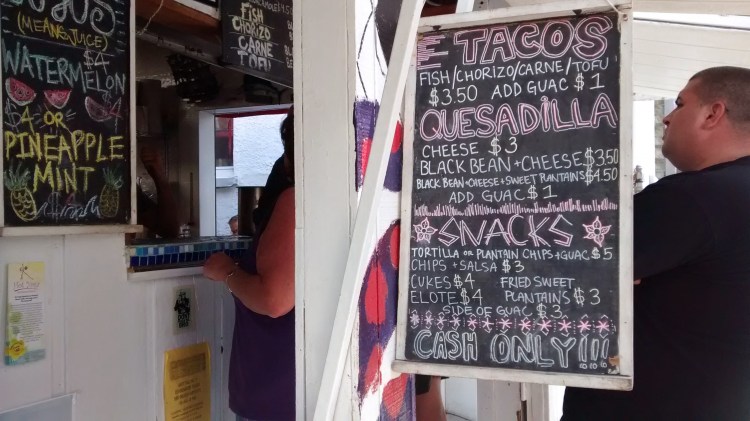 JUGOS
(MEANS JUICE)
$4
WATERMELON
$4 OR
PINEAPPLE
MINT
FISH
CHORIZO
CARNE
TOFU
E TACOS
FISH/CHORIZO/CARNE/TOFU
$3.50 ADD GUAC $1
QUESADILLA
CHEESE $3
BLACK BEAN + CHEESE $3.50
BLACK BEAN + CHEESE + SWEET PLANTAINS $4.50
ADD GUAC $1
SNACKS
TORTILLA OR PLANTAIN CHIPS + GUAC $5
CHIPS + SALSA $3
CUKES $4 FRIED SWEET
ELOTE $4 PLANTAINS $3
SIDE OF GUAC $3
CASH ONLY!!!